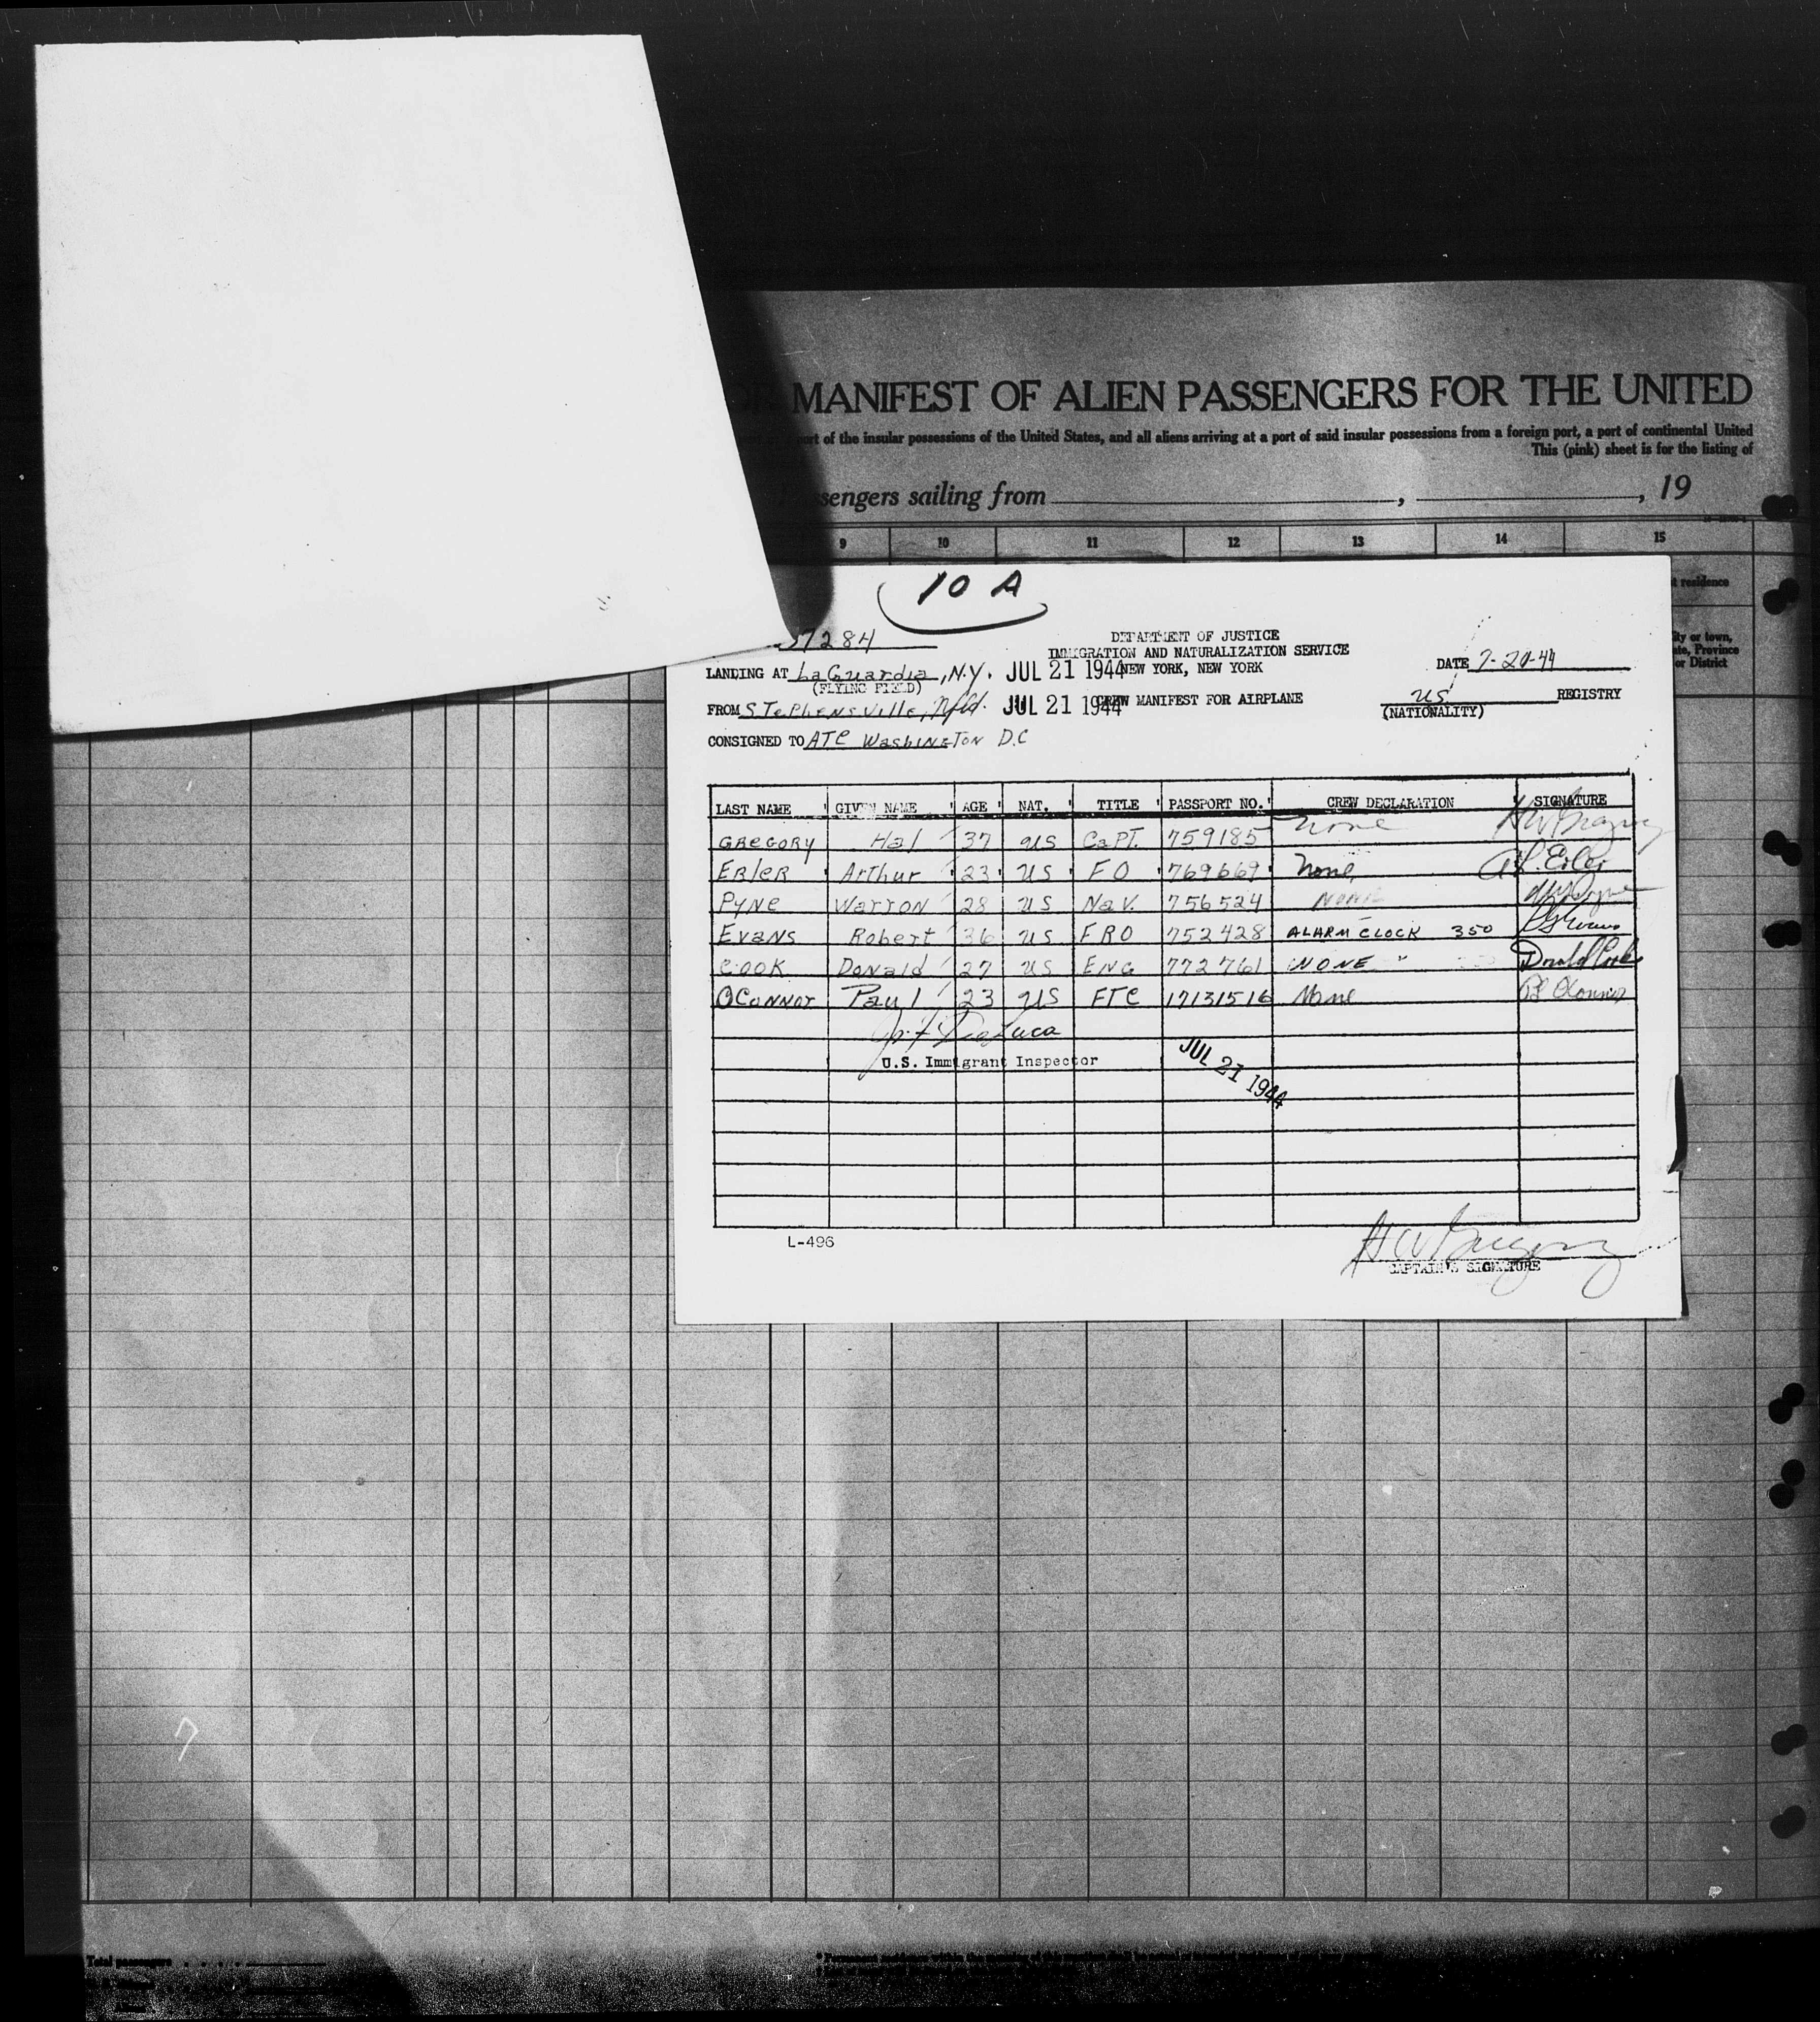 OR MANIFEST OF ALIEN PASSENGERS FOR THE UNITED
port of the insular possessions of the United States, and all aliens arriving at a port of said insular possessions from a foreign port, a port of continental United
This (pink) sheet is for the listing of
sengers sailing from , , 19
9 10 11 12 13 14 15
10 A
t residence
ity or town,
ate, Province
or District
7284
DEPARTMENT OF JUSTICE
IMMIGRATION AND NATURALIZATION SERVICE
LANDING AT LaGuardia, N.Y. JUL 21 1944 NEW YORK, NEW YORK DATE 7-20-44
(FLYING FIELD)
FROM STePHENSVille, Nfld. JUL 21 1944 CREW MANIFEST FOR AIRPLANE US REGISTRY
(NATIONALITY)
CONSIGNED TO ATC WashINGTON D.C
LAST NAME GIVEN NAME AGE NAT. TITLE PASSPORT NO. CREW DECLARATION SIGNATURE
GREGORY Hal 37 US CaPT. 759185 none HW Gregory
EBleR ArThur 23 US FO 769669 None
PyNe WarroN 28 US NaV. 756524 NONE
EvaNs Robert 36 US FRO 752428 ALARM CLOCK 350
COOK DoNald 27 US ENG 772761 NONE " Donald Cook
OCoNNor Paul 23 US FTC 17131516 None
U.S. Immigrant Inspector
JUL 21 1944
L-496
HW Gregory
CAPTAIN'S SIGNATURE
7
Total passengers